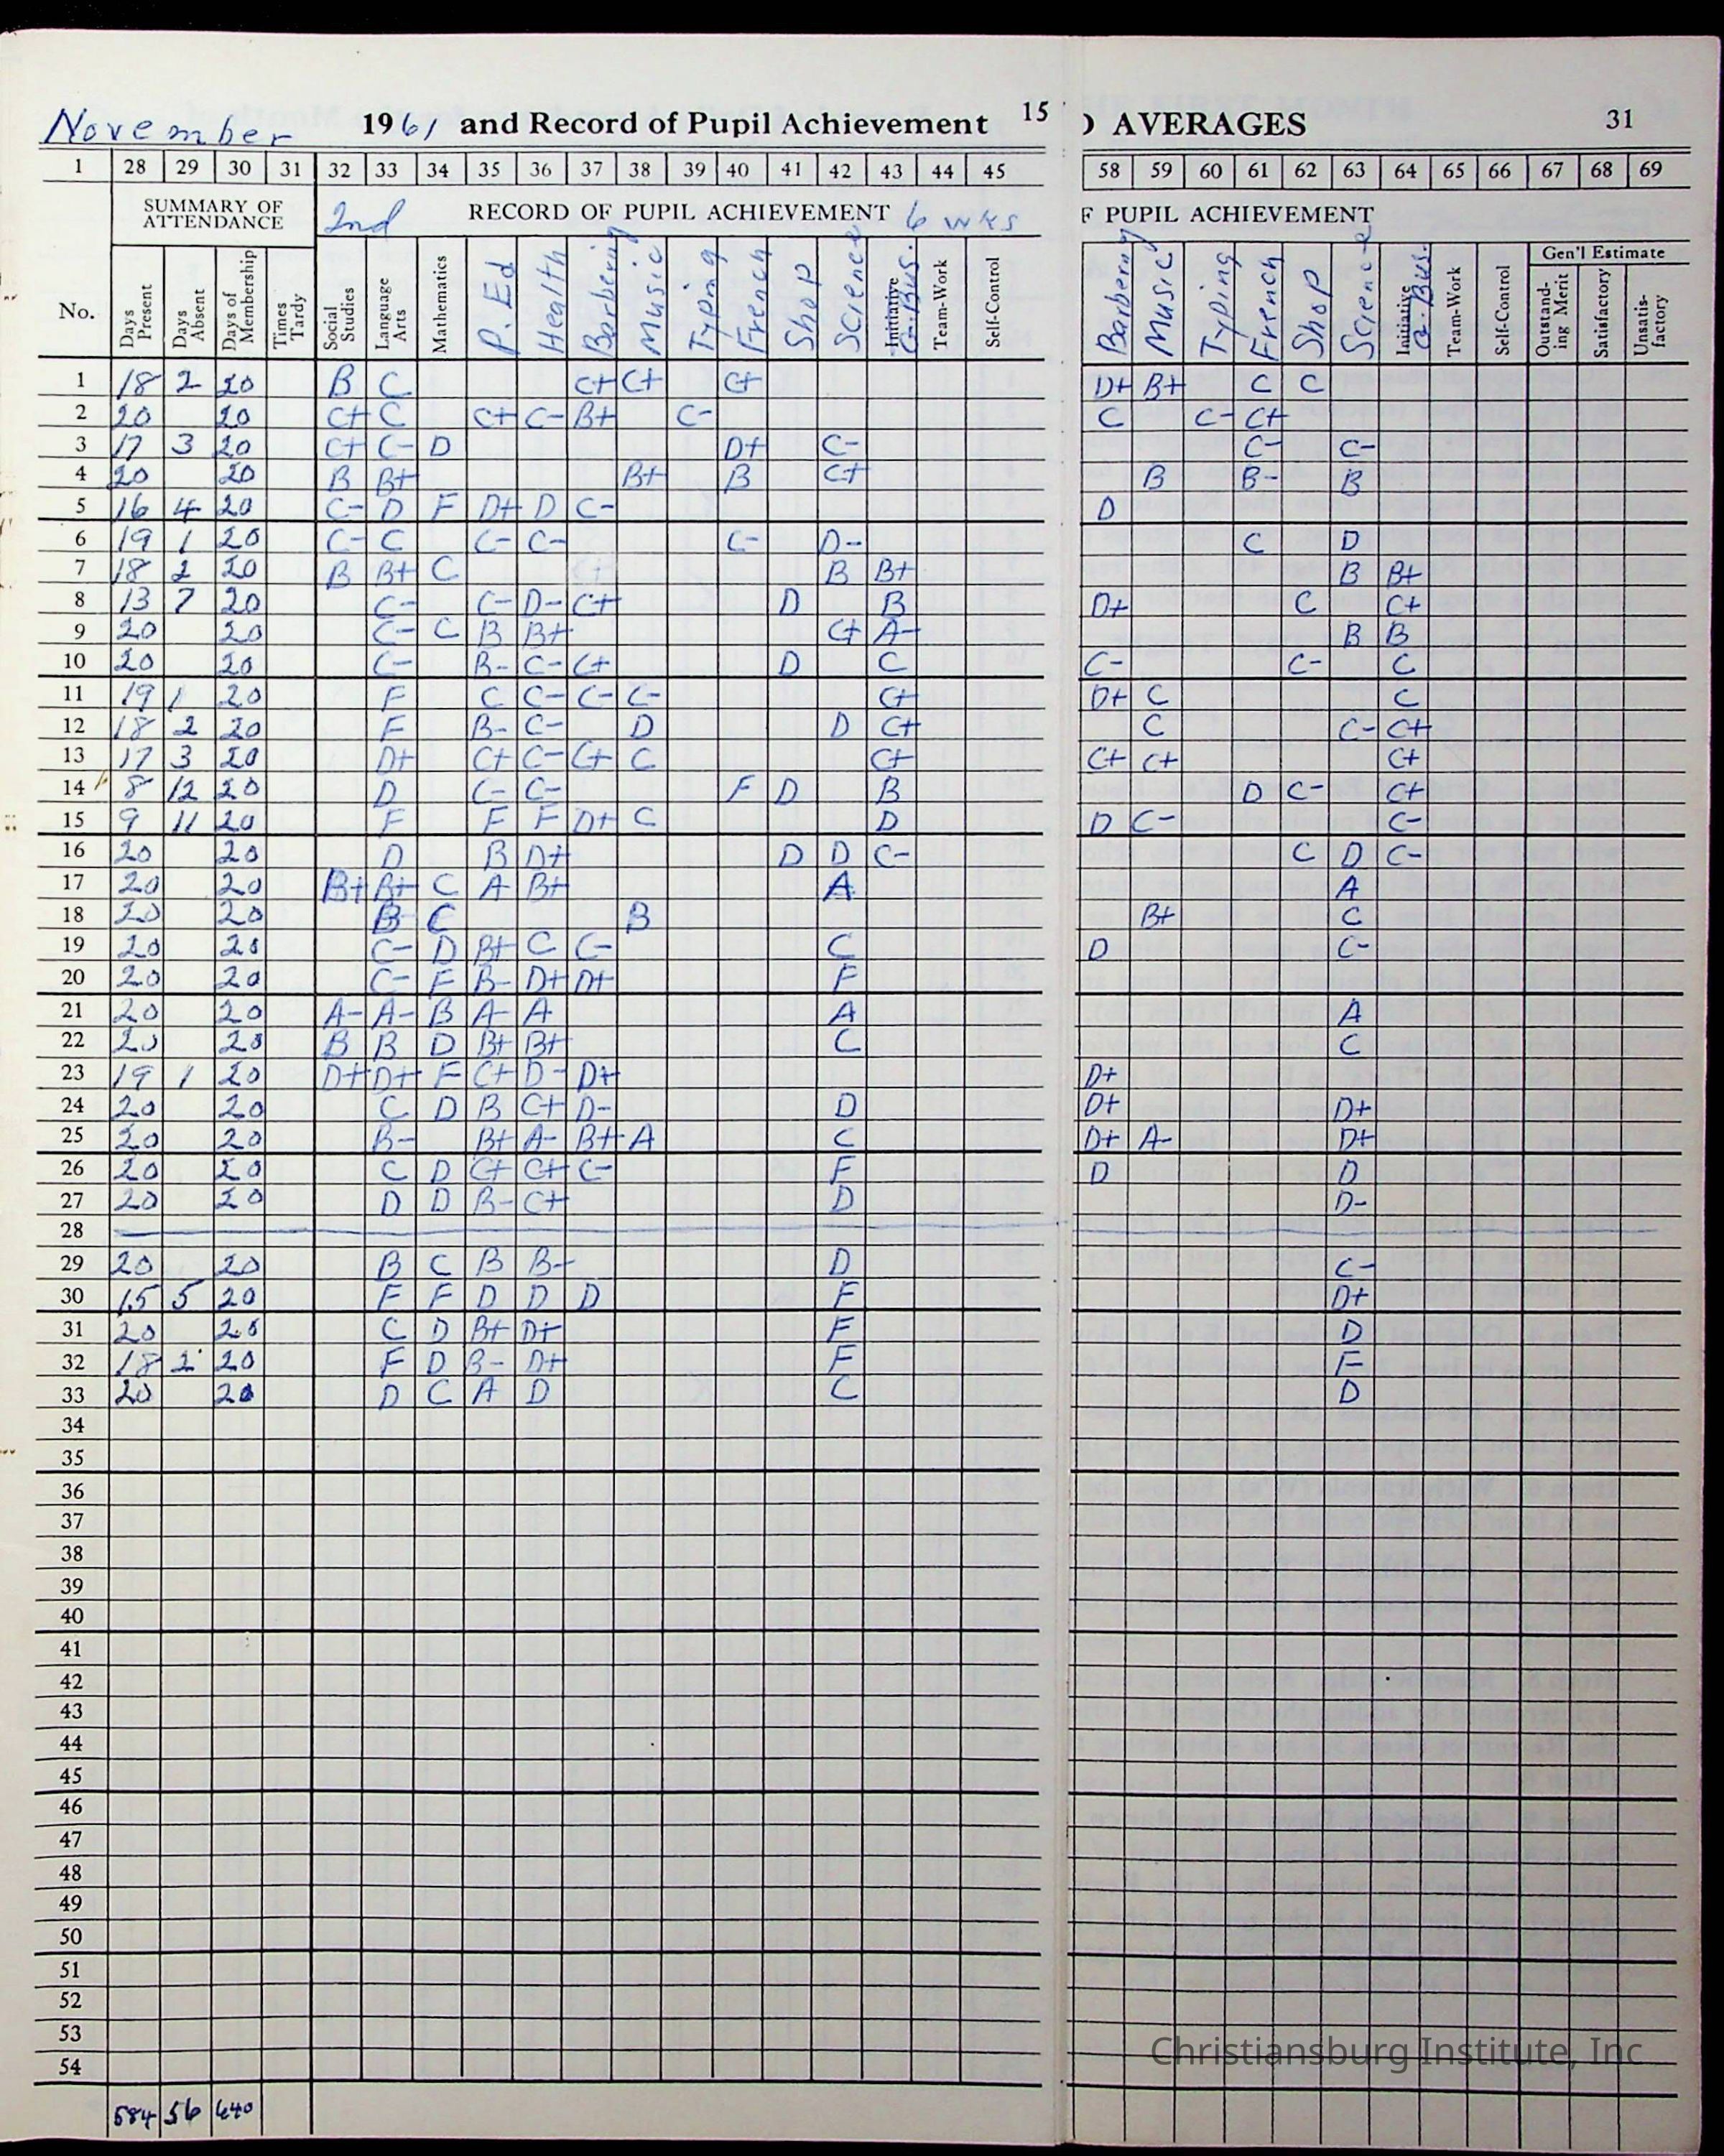 November 1961 and Record of Pupil Achievement 15 ) AVERAGES 31
1 28 29 30 31 32 33 34 35 36 37 38 39 40 41 42 43 44 45 58 59 60 61 62 63 64 65 66 67 68 69
SUMMARY OF ATTENDANCE 2nd RECORD OF PUPIL ACHIEVEMENT 6 wks F PUPIL ACHIEVEMENT
Gen'l Estimate
No. Days Present Days Absent Days of Membership Times Tardy Social Studies Language Arts Mathematics P. Ed Health Barbering Music Typing French Shop Science Initiative G. Bus. Team-Work Self-Control Barbery Music Typing French Shop Science Initiative G. Bus. Team-Work Self-Control Outstand-ing Merit Satisfactory Unsatis-factory
1 18 2 20 B C C+ C+ C+ D+ B+ C C
2 20 20 C+ C C+ C- B+ C- C C- C+
3 17 3 20 C+ C- D D+ C- C- C-
4 20 20 B B+ B+ B C+ B B- B
5 16 4 20 C- D F D+ D C- D
6 19 1 20 C- C C- C- C- D- C D
7 18 2 20 B B+ C B B+ B B+
8 13 7 20 C- C- D- C+ D B D+ C C+
9 20 20 C- C B B+ C+ A- B B
10 20 20 C- B- C- C+ D C C- C- C
11 19 1 20 F C C- C- C- C+ D+ C C
12 18 2 20 F B- C- D D C+ C C- C+
13 17 3 20 D+ C+ C- C+ C C+ C+ C+ C+
14 8 12 20 D C- C- F D B D C- C+
15 9 11 20 F F F D+ C D D C- C-
16 20 20 D B D+ D D C- C D C-
17 20 20 B+ B+ C A B+ A A
18 20 20 B C B B+ C
19 20 20 C- D B+ C C- C D C-
20 20 20 C- F B- D+ D+ F
21 20 20 A- A- B A- A A A
22 20 20 B B D B+ B+ C C
23 19 1 20 D+ D+ F C+ D- D+ D+
24 20 20 C D B C+ D- D D+ D+
25 20 20 B- B+ A- B+ A C D+ A- D+
26 20 20 C D C+ C+ C- F D D
27 20 20 D D B- C+ D D-
28
29 20 20 B C B B- D C-
30 15 5 20 F F D D D F D+
31 20 20 C D B+ D+ F D
32 18 2 20 F D B- D+ F F
33 20 20 D C A D C D
34
35
36
37
38
39
40
41
42
43
44
45
46
47
48
49
50
51
52
53
54
584 56 640
Christiansburg Institute, Inc